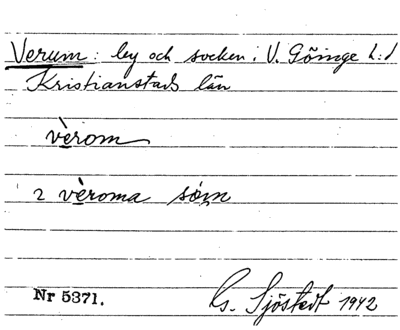 Verum: by och socken i V. Göinge h:d
Kristianstads län
vèrom
2 vèroma sóṃ
Nr 5371.
G. Sjöstedt 1942